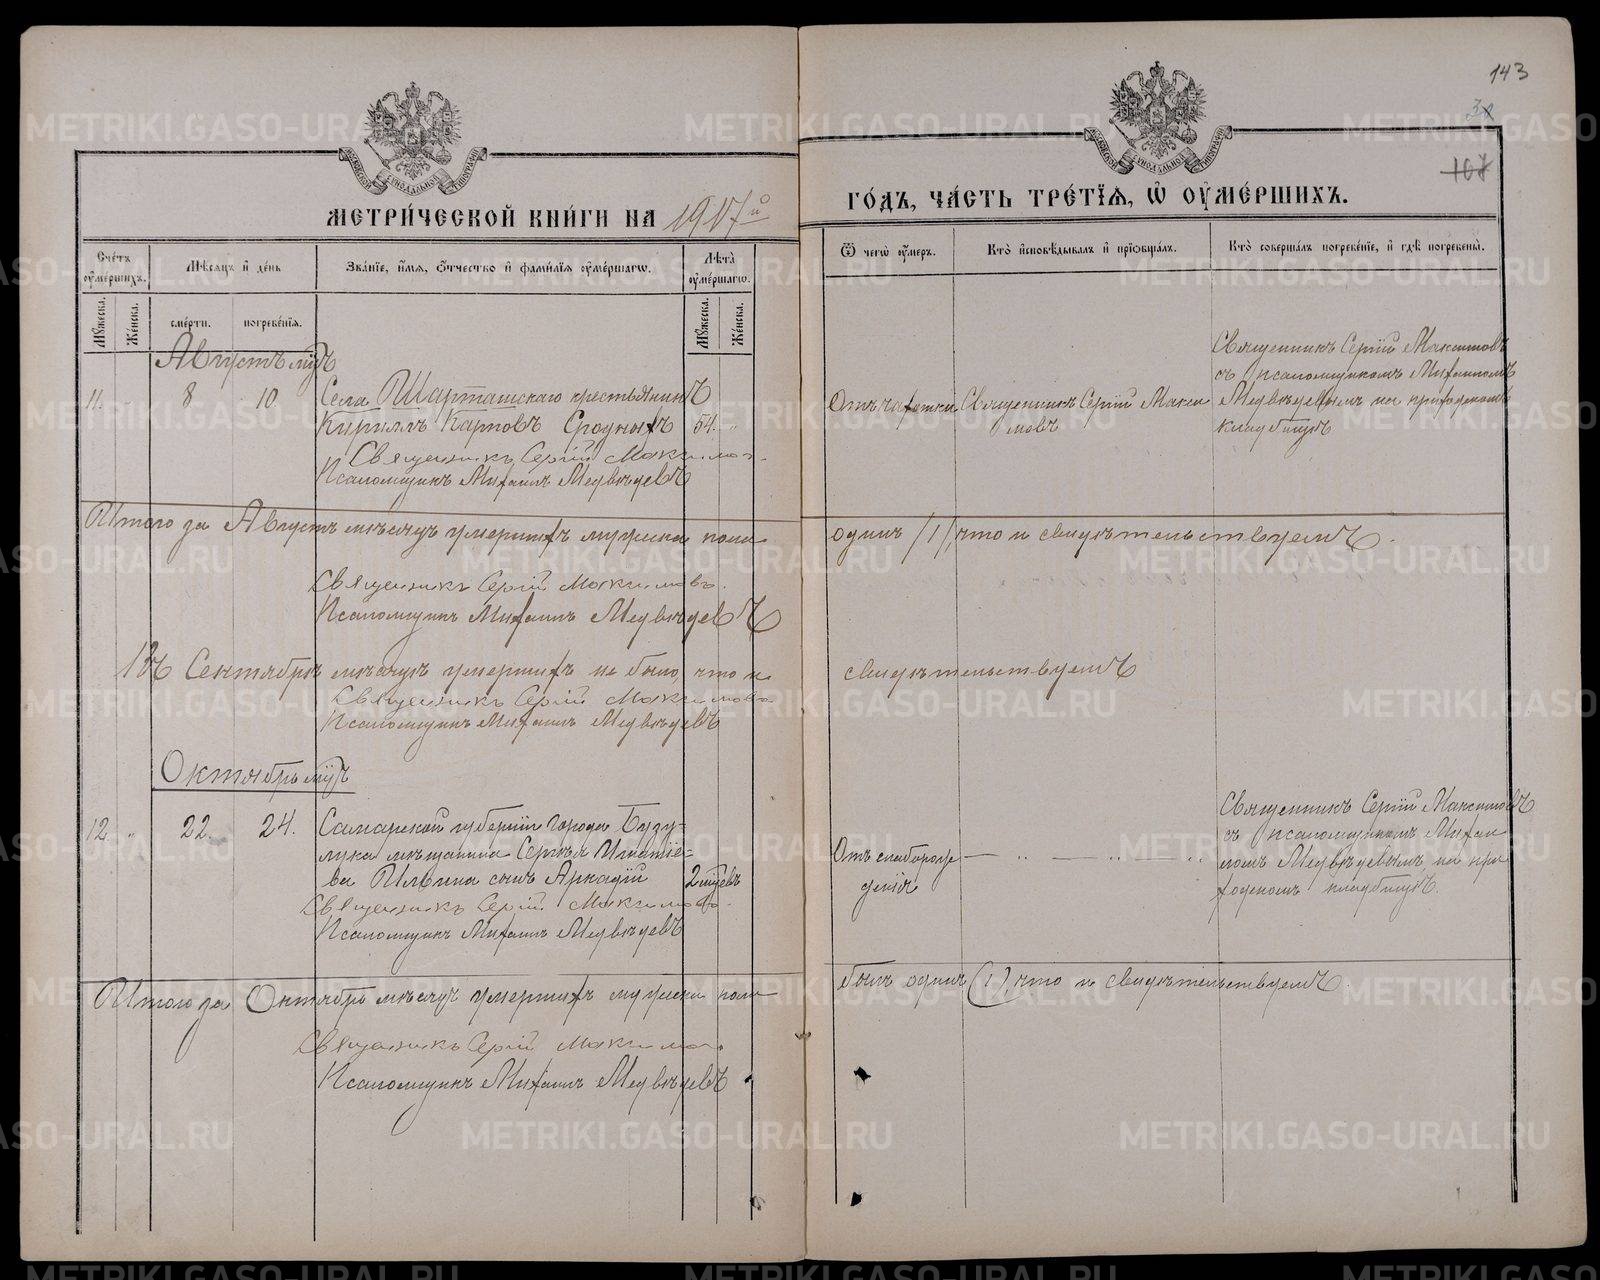 143
107
МЕТРИ́ЧЕСКОЙ КНИ́ГИ НА 1917й
ГО́ДЪ, ЧА́СТЬ ТРЕ́ТЇѦ, Ѡ҆ ОУ҆МЕ́РШИХЪ.
Сче́тъ оу҆ме́ршихъ.
Мѣ́сѧцъ и҆ де́нь
Зва́нїе, и҆́мѧ, ѻ҆́тчество и҆ фами́лїѧ оу҆ме́ршагѡ.
Лѣ́та оу҆ме́ршагѡ.
Ѿ чегѡ̀ оу҆́меръ.
Кто̀ и҆сповѣ́дывалъ и҆ прїѡбща́лъ.
Кто̀ соверша́лъ погребе́нїе, и҆ гдѣ̀ погребены̀.
Мꙋ́жеска.
Же́нска.
сме́рти.
погребе́нїѧ.
Мꙋ́жеска.
Же́нска.
Августъ мцъ
11. 8 10. Села Шарташскаго крестьянинъ
Кириллъ Карповъ Сродныхъ 54. „
Священникъ Сергій Максимов.
Псаломщикъ Михаилъ Медвѣдевъ
Отъ чахотки
Священникъ Сергій Макси
мовъ
Священникъ Сергій Максимовъ
съ псаломщикомъ Михаиломъ
Медвѣдевымъ на приходскомъ
кладбищѣ
Итого за Августъ мѣсяцъ умершихъ мужска пола одинъ /1/, что и свидѣтельствуемъ.
Священникъ Сергій Максимовъ.
Псаломщикъ Михаилъ Медвѣдевъ
Въ Сентябрѣ мѣсяцѣ умершихъ не было, что и свидѣтельствуемъ
Священникъ Сергій Максимовъ
Псаломщикъ Михаилъ Медвѣдевъ
Октябрь мцъ
12 „ 22. 24. Самарской губерніи города Бузу-
лука мѣщанина Сергѣя Игнатіе-
ва Ильина сынъ Аркадій 2 мцевъ
Священникъ Сергій Максимовъ.
Псаломщикъ Михаилъ Медвѣдевъ
Отъ слаборож
денія
— „ — „ — „
Священникъ Сергій Максимовъ
съ псаломщикомъ Михаи
ломъ Медвѣдевымъ на при
ходскомъ кладбищѣ.
Итого за Октябрь мѣсяцъ умершихъ мужска пола былъ одинъ (1) что и свидѣтельствуемъ.
Священникъ Сергій Максимов.
Псаломщикъ Михаилъ Медвѣдевъ.
METRIKI.GASO-URAL.RU